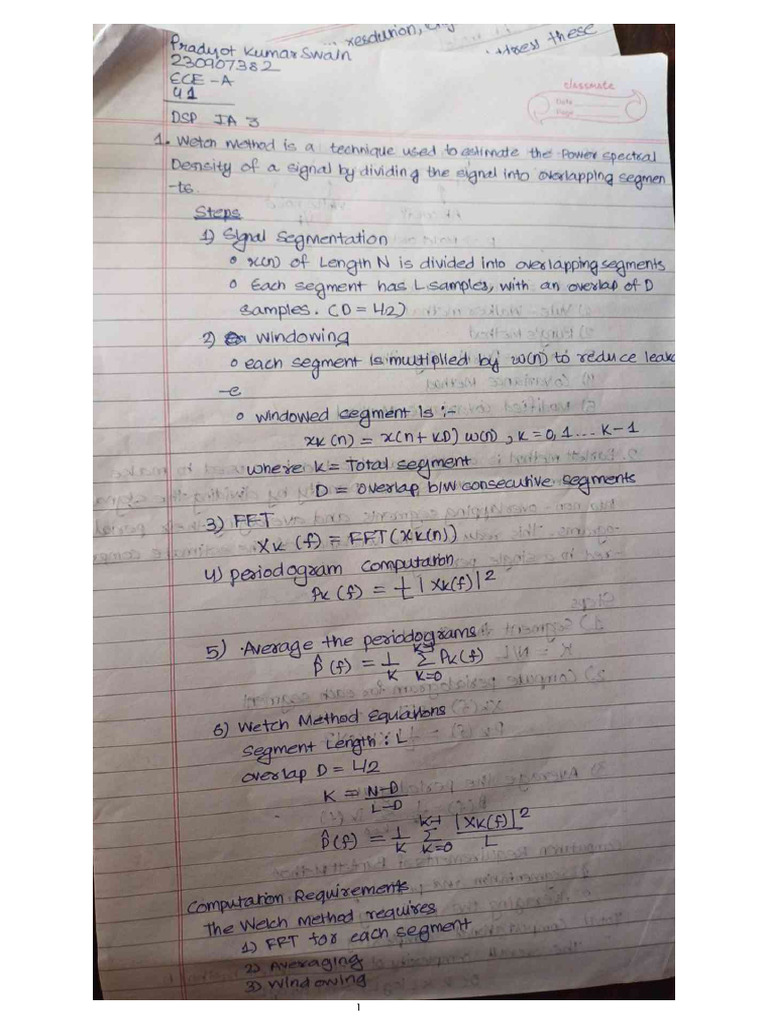 resolution,
address these
Pradyot Kumar Swain
230907382
ECE-A
41
classmate
Date
Page
DSP IA 3
1. Welch method is a technique used to estimate the Power spectral
Density of a signal by dividing the signal into overlapping segmen
-ts.
Steps
1) Signal segmentation
o x(n) of Length N is divided into overlapping segments
o Each segment has L samples, with an overlap of D
samples. (D = L/2)
2) windowing
o each segment is multiplied by w(n) to reduce leak
-e
o windowed segment is :-
xk(n) = x(n+KD) w(n), k=0,1...K-1
where K = Total segment
D = overlap b/w consecutive segments
3) FFT
Xk(f) = FFT(xk(n))
4) periodogram computation
Pk(f) = 1/L |Xk(f)|²
5) Average the periodograms
P̂(f) = 1/K Σ_{K=0}^{K-1} Pk(f)
6) Welch Method Equations
Segment Length : L
overlap D = L/2
K = (N-D)/(L-D)
P̂(f) = 1/K Σ_{K=0}^{K-1} |Xk(f)|²/L
Computation Requirements
The Welch method requires
1) FFT for each segment
2) Averaging
3) Windowing
1